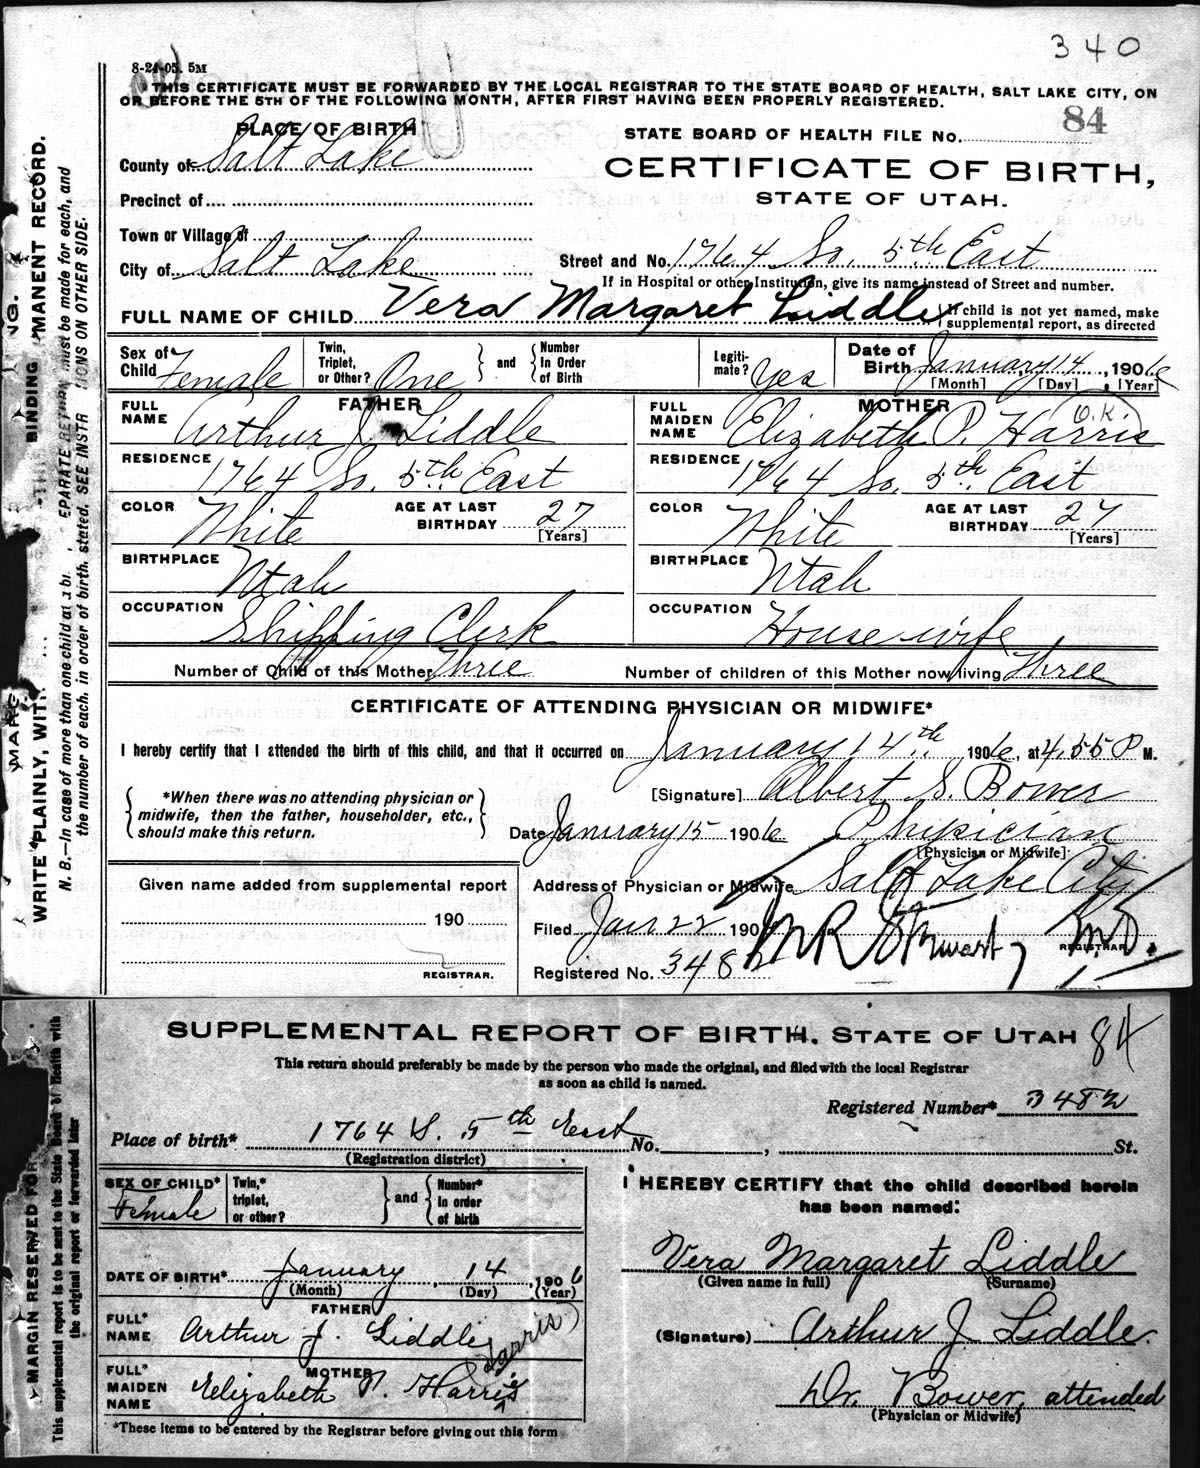 340
8-21-05. 5M
THIS CERTIFICATE MUST BE FORWARDED BY THE LOCAL REGISTRAR TO THE STATE BOARD OF HEALTH, SALT LAKE CITY, ON
OR BEFORE THE 5TH OF THE FOLLOWING MONTH, AFTER FIRST HAVING BEEN PROPERLY REGISTERED.
PLACE OF BIRTH
STATE BOARD OF HEALTH FILE No. 84
County of Salt Lake
CERTIFICATE OF BIRTH,
Precinct of
STATE OF UTAH.
Town or Village of
City of Salt Lake
Street and No. 1764 So. 5th East
If in Hospital or other Institution, give its name instead of Street and number.
FULL NAME OF CHILD Vera Margaret Liddle
If child is not yet named, make
supplemental report, as directed
Sex of Child Female
Twin, Triplet, or Other? One
and Number In Order of Birth
Legiti-mate? Yes
Date of Birth January 14, 1906
[Month] [Day] [Year]
FATHER
FULL NAME Arthur J. Liddle
RESIDENCE 1764 So. 5th East
COLOR White
AGE AT LAST BIRTHDAY 27 [Years]
BIRTHPLACE Utah
OCCUPATION Shipping Clerk
MOTHER
O.K.
FULL MAIDEN NAME Elizabeth P. Harris
RESIDENCE 1764 So. 5th East
COLOR White
AGE AT LAST BIRTHDAY 27 [Years]
BIRTHPLACE Utah
OCCUPATION House wife
Number of Child of this Mother Three
Number of children of this Mother now living Three
CERTIFICATE OF ATTENDING PHYSICIAN OR MIDWIFE*
I hereby certify that I attended the birth of this child, and that it occurred on January 14th 1906, at 4.55 P M.
*When there was no attending physician or
midwife, then the father, householder, etc.,
should make this return.
[Signature] Albert S. Bower
Date January 15 1906 Physician
[Physician or Midwife]
Given name added from supplemental report
190
REGISTRAR.
Address of Physician or Midwife Salt Lake City
Filed Jan 22 1906 M R Stewart, M.D.
REGISTRAR
Registered No. 3482
WRITE PLAINLY, WITH
BINDING
MANENT RECORD.
N. B.—In case of more than one child at a bi
EPARATE RETURN must be made for each, and
the number of each, in order of birth, stated. SEE INSTR
IONS ON OTHER SIDE.
SUPPLEMENTAL REPORT OF BIRTH. STATE OF UTAH 84
This return should preferably be made by the person who made the original, and filed with the local Registrar
as soon as child is named.
Registered Number* 3482
Place of birth* 1764 S. 5th East No. , St.
(Registration district)
SEX OF CHILD* Female
Twin,* triplet, or other?
and Number* in order of birth
DATE OF BIRTH* January, 14, 1906
(Month) (Day) (Year)
FATHER
FULL* NAME Arthur J. Liddle
MOTHER
FULL* MAIDEN NAME Elizabeth P. Harris
Harris
*These items to be entered by the Registrar before giving out this form
I HEREBY CERTIFY that the child described herein
has been named:
Vera Margaret Liddle
(Given name in full) (Surname)
(Signature) Arthur J. Liddle
Dr. Bower, attended
(Physician or Midwife)
MARGIN RESERVED FOR
This supplemental report is to be sent to the State Board of Health with
the original report or forwarded later